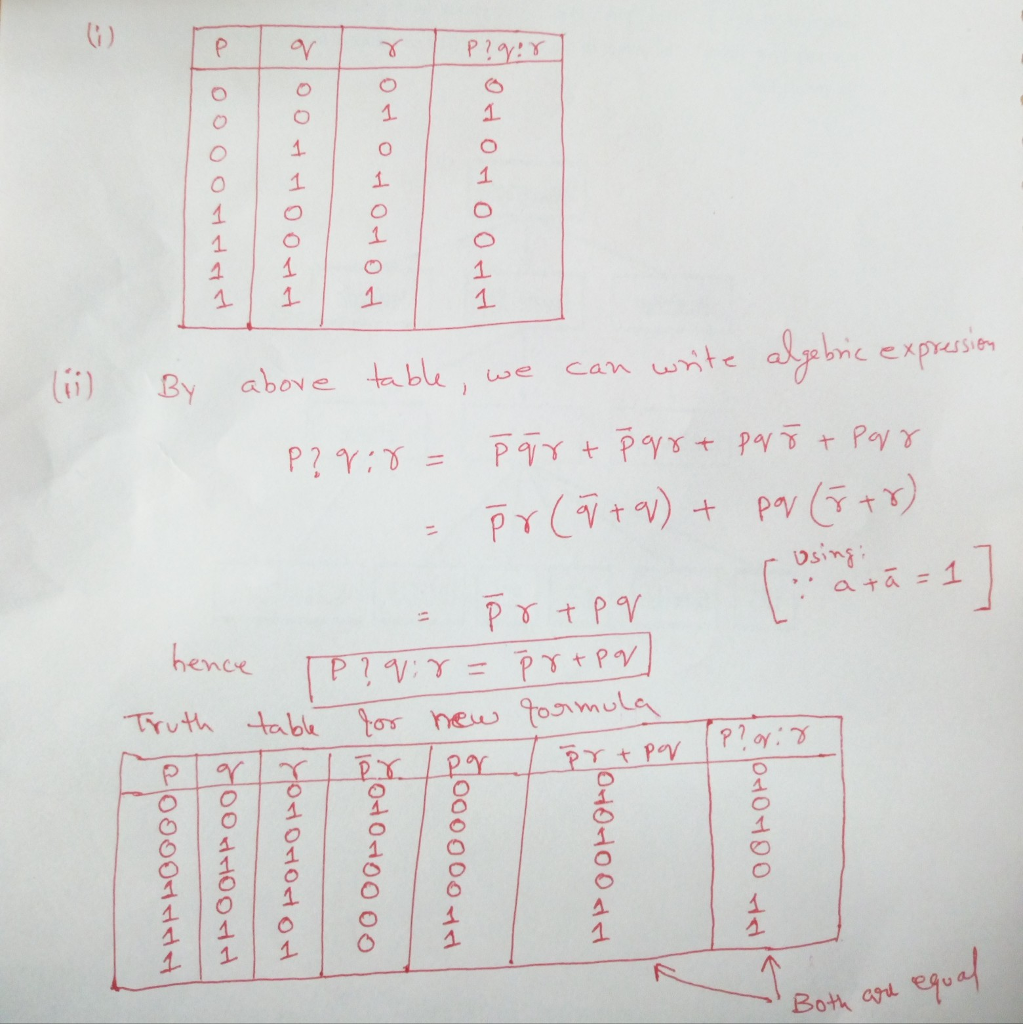 (i)
p q r p?q:r
0 0 0 0
0 0 1 1
0 1 0 0
0 1 1 1
1 0 0 0
1 0 1 0
1 1 0 1
1 1 1 1
(ii) By above table, we can write algebric expression
p?q:r = p̄q̄r + p̄qr + pqr̄ + pqr
= p̄r(q̄+q) + pq(r̄+r)
[Using: ∵ a+ā = 1]
= p̄r + pq
hence p?q:r = p̄r+pq
Truth table for new formula
p q r p̄r pq p̄r + pq p?q:r
0 0 0 0 0 0 0
0 0 1 1 0 1 1
0 1 0 0 0 0 0
0 1 1 1 0 1 1
1 0 0 0 0 0 0
1 0 1 0 0 0 0
1 1 0 0 1 1 1
1 1 1 0 1 1 1
Both are equal